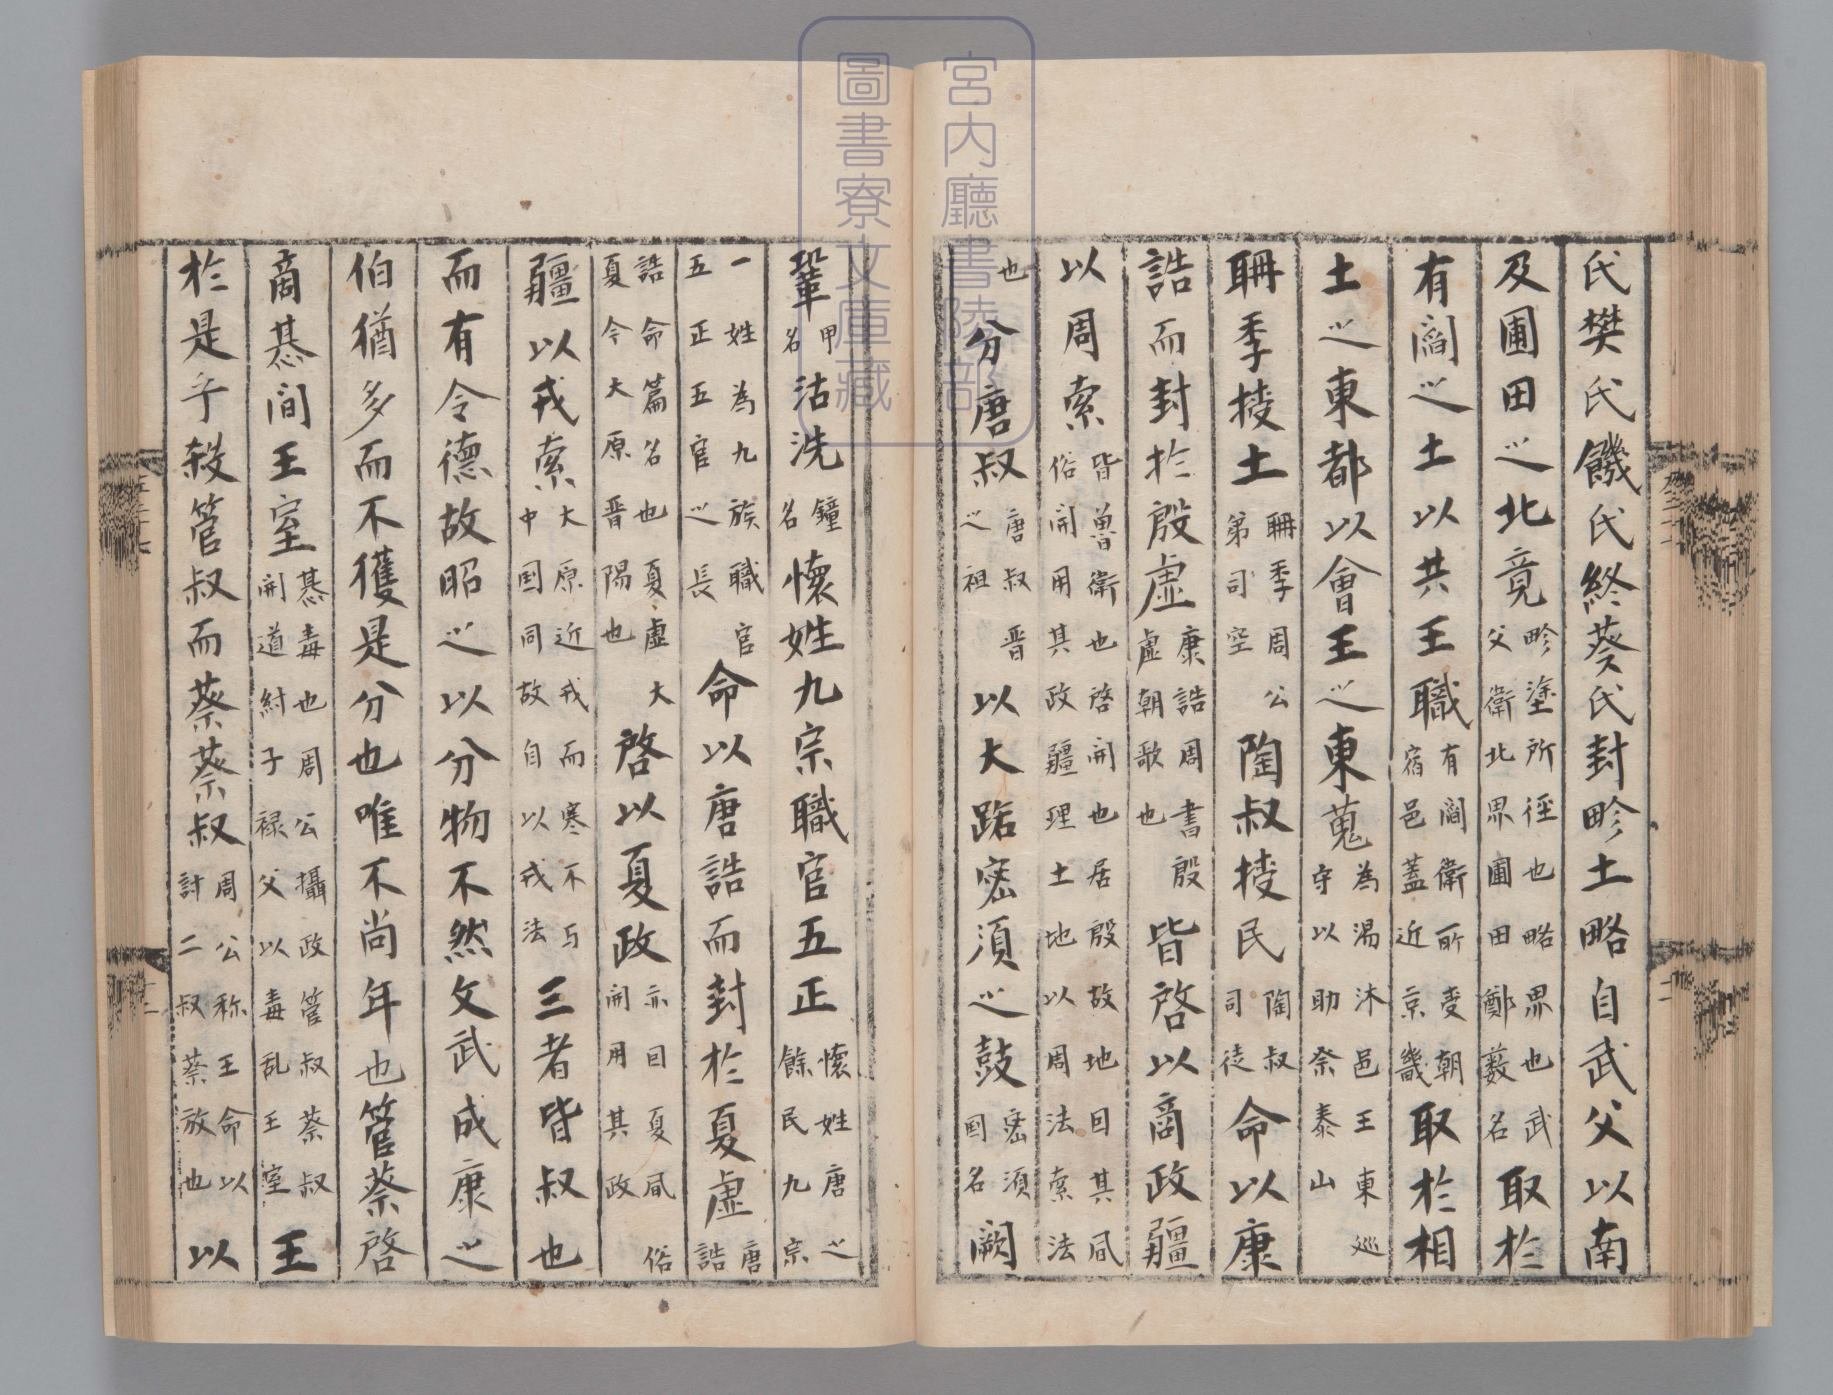 氏樊氏饑氏終葵氏封畛土略自武父以南
及圃田之北竟畛塗所径也略界也武父衛北界圃田鄭藪名取於
有閻之土以共王職有閻衛所受朝宿邑蓋近京畿取於相
土之東都以會王之東蒐為湯沐邑王東巡守以助祭泰山
聃季授土聃季周公弟司空陶叔授民陶叔司徒命以康
誥而封於殷虛康誥周書殷虛朝歌也皆啓以商政疆
以周索皆魯衛也啓開也居殷故地因其風俗開用其政疆理土地以周法索法
也分唐叔唐叔晋之祖以大路密須之鼓密須国名闕
鞏甲名沽洗鐘名懷姓九宗職官五正懷姓唐之餘民九宗
一姓為九族職官五正五官之長命以唐誥而封於夏虛唐誥
誥命篇名也夏虛大夏今大原晋陽也啓以夏政亦因夏風俗開用其政
疆以戎索大原近戎而寒不与中国同故自以戎法三者皆叔也
而有令德故昭之以分物不然文武成康之
伯猶多而不獲是分也唯不尚年也管蔡啓
商惎間王室惎毒也周公攝政管叔蔡叔開道紂子禄父以毒乱王室王
於是乎殺管叔而蔡蔡叔周公称王命以討二叔蔡放也以
宮内廳書陵部
圖書寮文庫藏